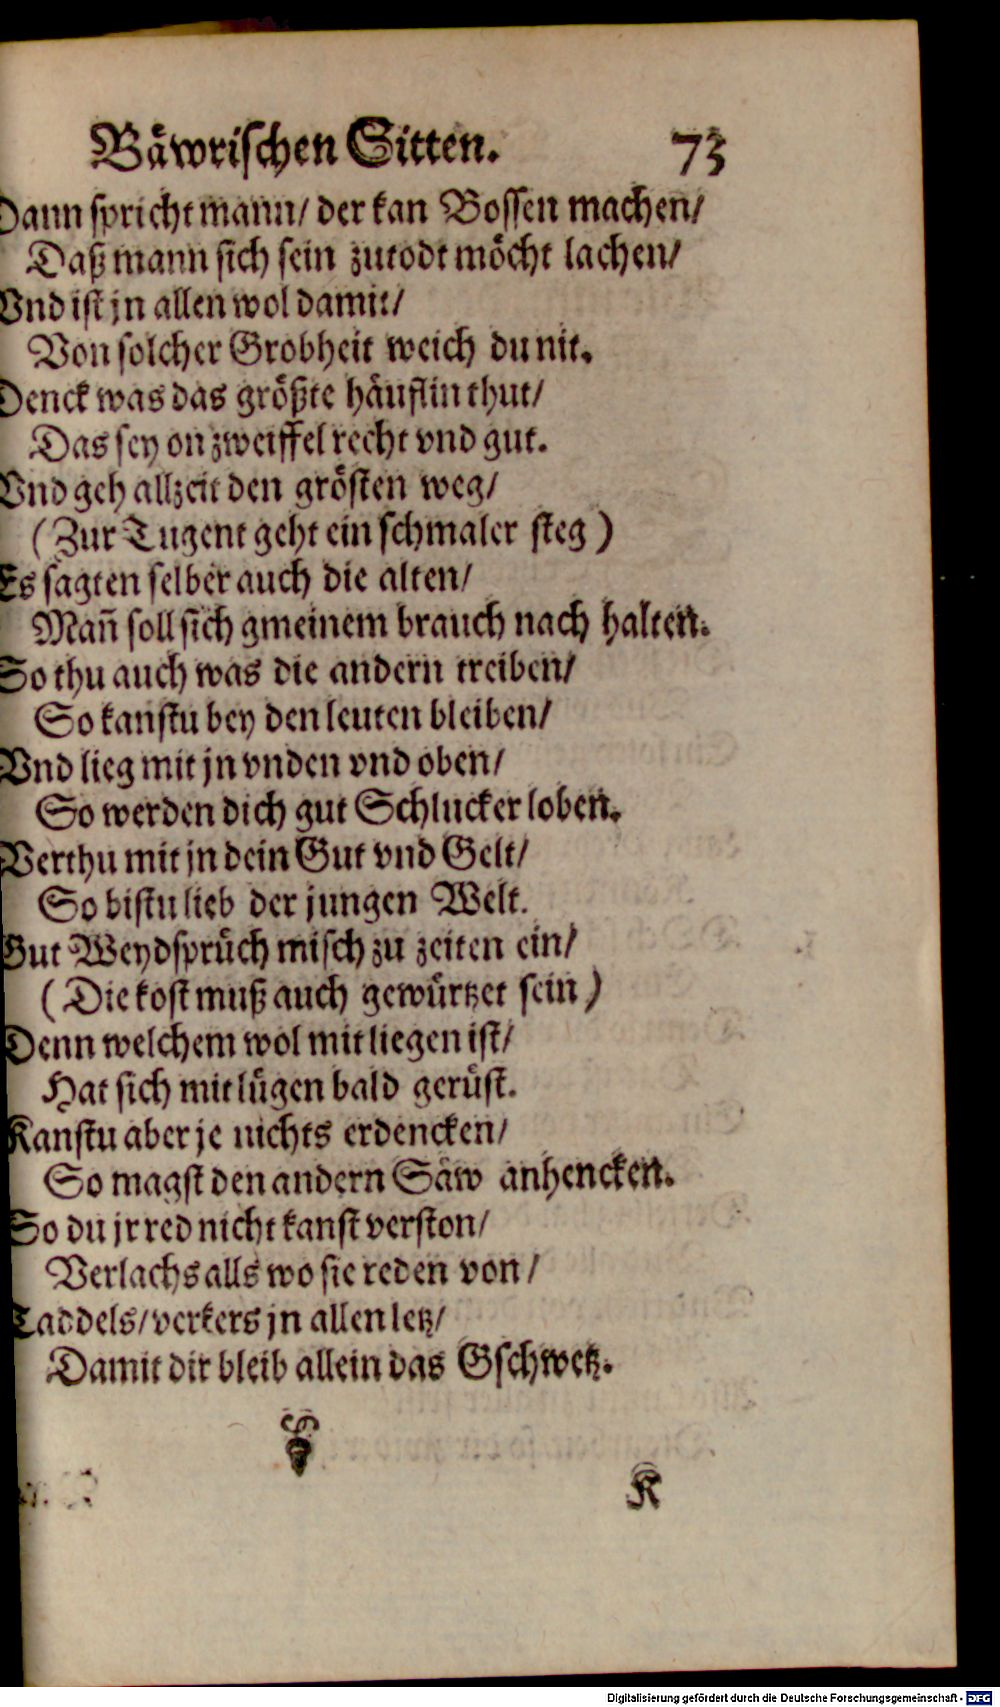 Bäwrischen Sitten. 73
Dann spricht mann/ der kan Bossen machen/
Daß mann sich sein zutodt möcht lachen/
Vnd ist jn allen wol damit/
Von solcher Grobheit weich du nit.
Denck was das größte häuflin thut/
Das sey on zweiffel recht vnd gut.
Vnd geh allzeit den grösten weg/
(Zur Tugent geht ein schmaler steg)
Es sagten selber auch die alten/
Mañ soll sich gmeinem brauch nach halten.
So thu auch was die andern treiben/
So kanstu bey den leuten bleiben/
Vnd lieg mit jn vnden vnd oben/
So werden dich gut Schlucker loben.
Verthu mit jn dein Gut vnd Gelt/
So bistu lieb der jungen Welt.
Gut Weydsprüch misch zu zeiten ein/
(Die kost muß auch gewürtzet sein)
Denn welchem wol mit liegen ist/
Hat sich mit lügen bald gerüst.
Kanstu aber je nichts erdencken/
So magst den andern Säw anhencken.
So du jr red nicht kanst verston/
Verlachs alls wo sie reden von/
Taddels/ verkers jn allen letz/
Damit dir bleib allein das Gschwetz.
K
Digitalisierung gefördert durch die Deutsche Forschungsgemeinschaft - DFG